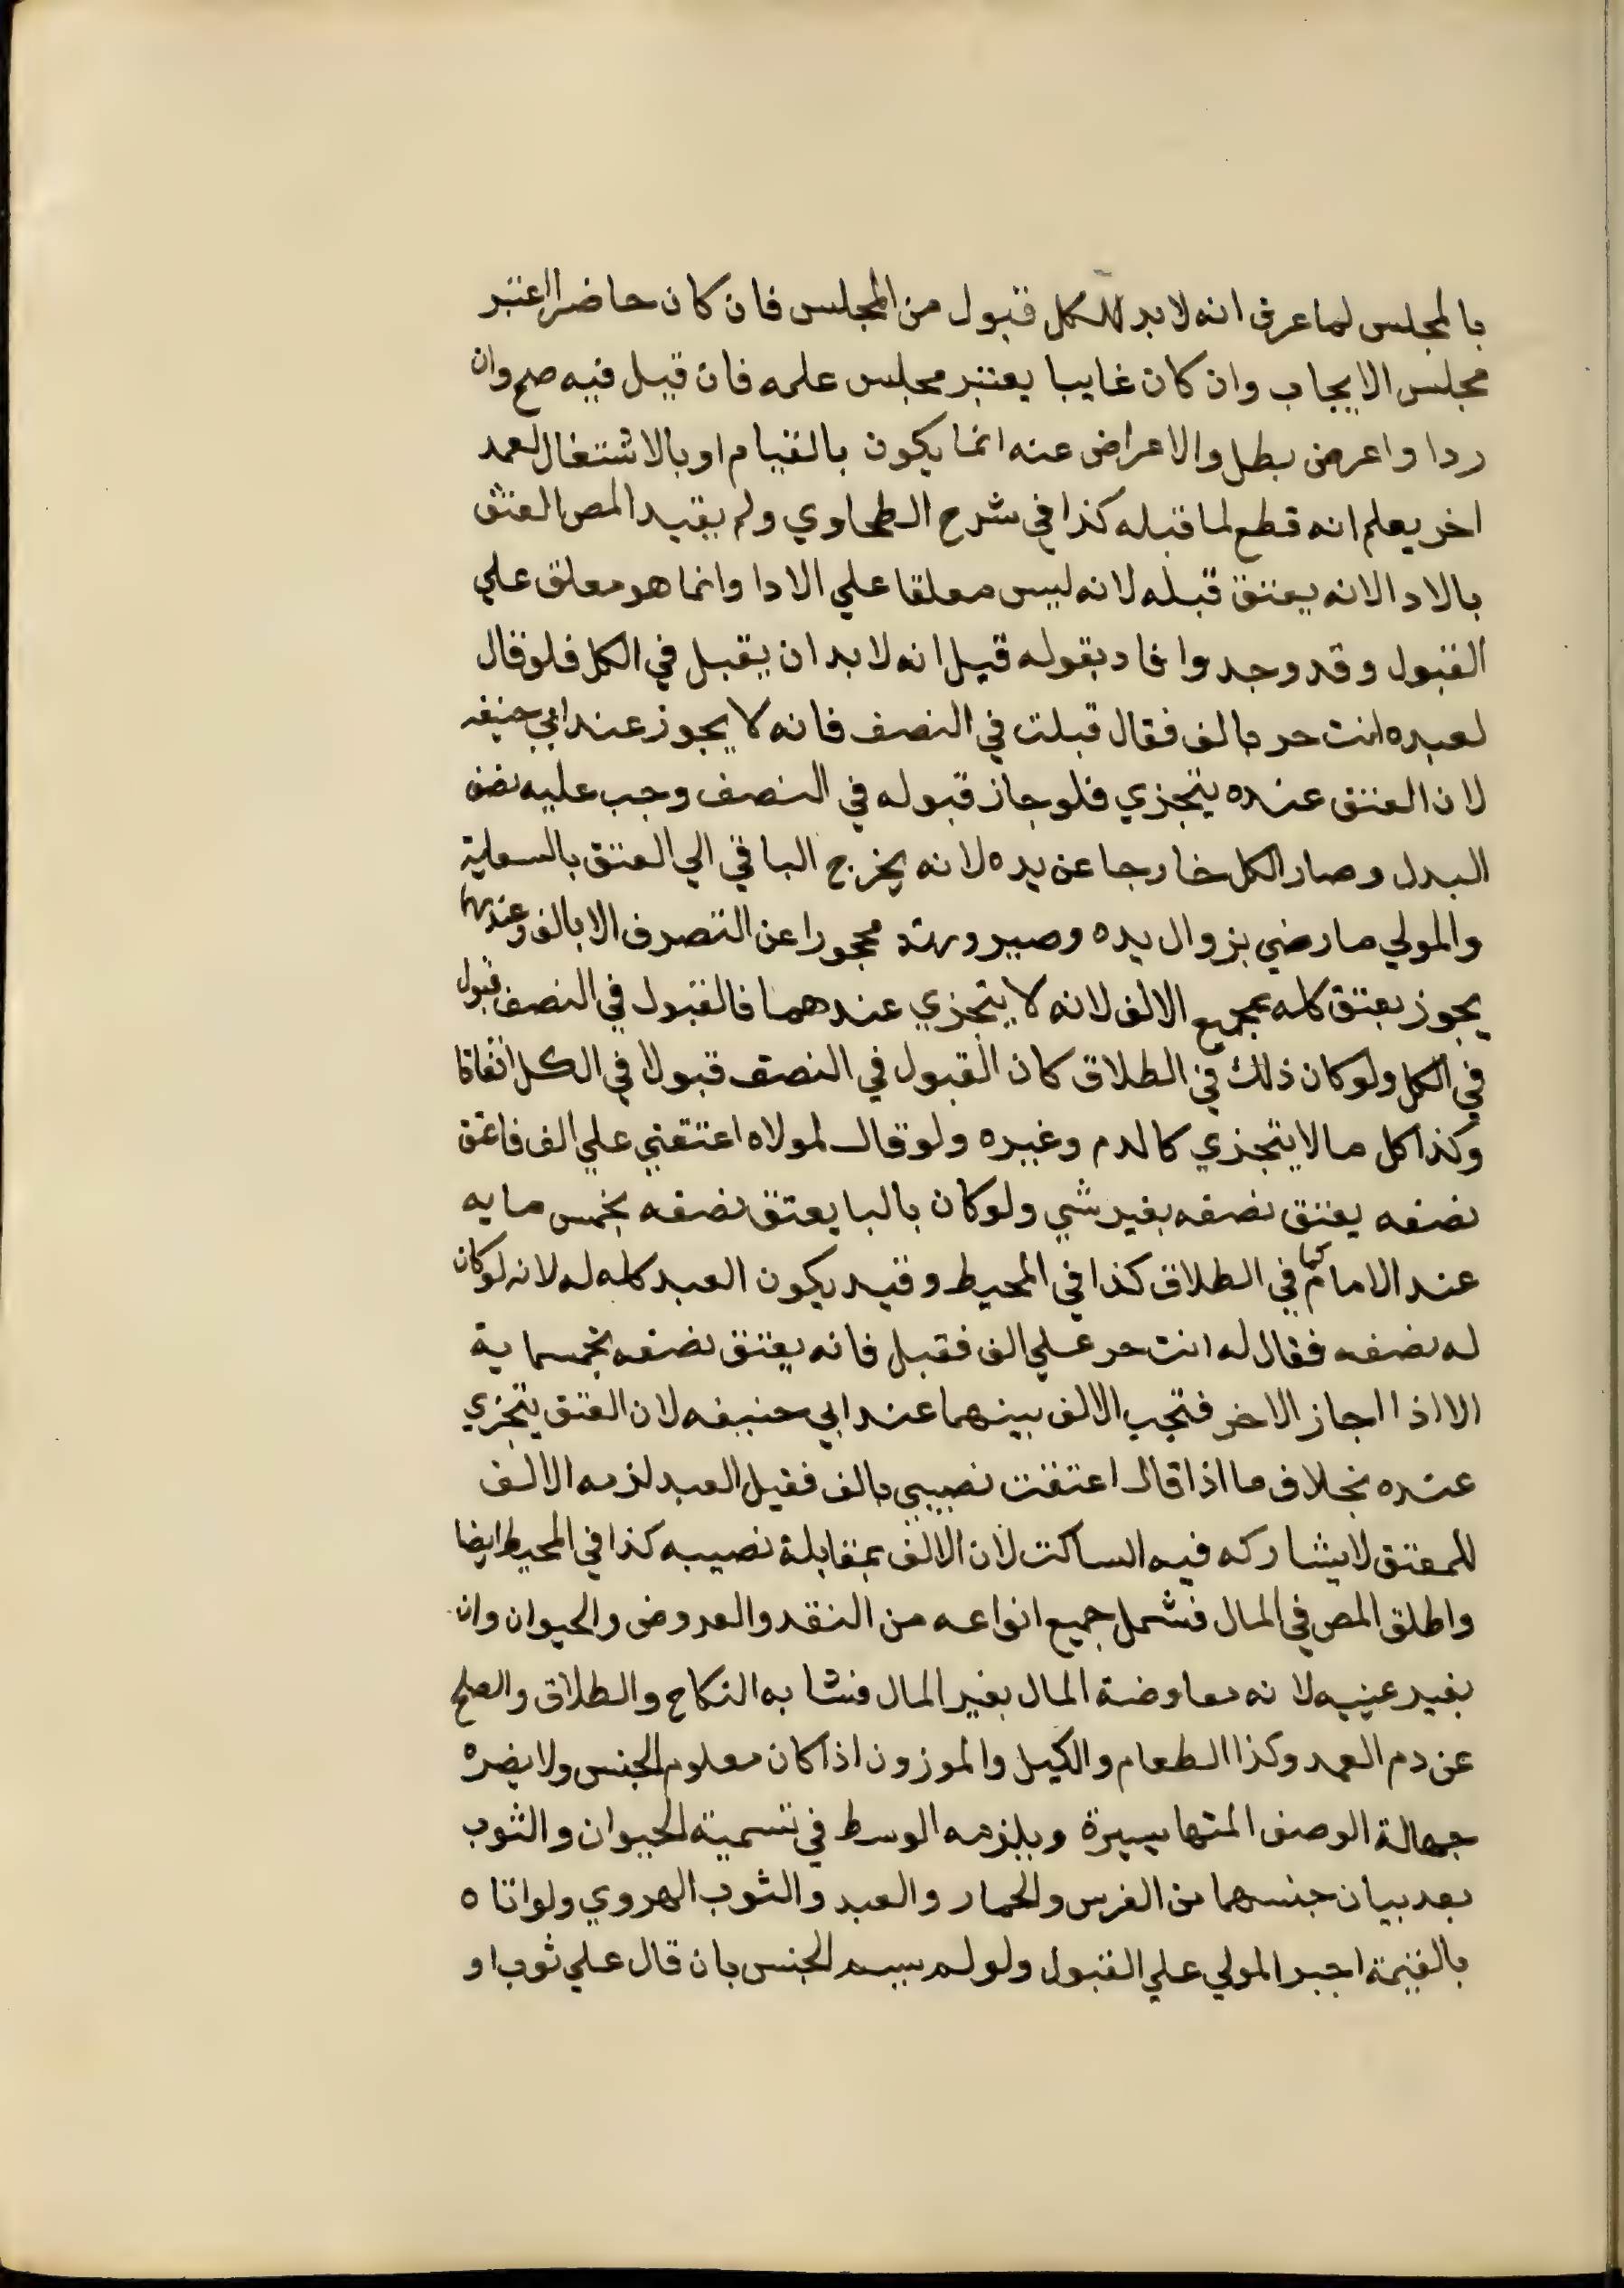 بالمجلس لما عرف انه لا بد لكل قبول من المجلس فان كان حاضرا اعتبر
مجلس الايجاب وان كان غايبا يعتبر مجلس علمه فان قبل فيه صح وان
ردا واعرض بطل والاعراض عنه انما يكون بالقيام او بالاشتغال لعمد
اخر يعلم انه قطع لما قبله كذا في شرح الطحاوي ولم يقيد المص العتق
بالادا لانه يعتق قبله لانه ليس معلقا علي الادا وانما هو معلق علي
القبول وقد وجد وافاد بقوله قبل انه لا بد ان يقبل في الكل فلو قال
لعبده انت حر بالف فقال قبلت في النصف فانه لا يجوز عند ابي حنيفه
لان العتق عنده يتجزي فلو جاز قبوله في النصف وجب عليه نصف
البدل وصار الكل خارجا عن يده لانه يخرج الباقي الي العتق بالسعاية
والمولي ما رضي بزوال يده وصيرورته محجورا عن التصرف الا بالف وعندهما
يجوز يعتق كله بجميع الالف لانه لا يتجزي عندهما فالقبول في النصف قبول
في الكل ولو كان ذلك في الطلاق كان القبول في النصف قبولا في الكل اتفاقا
وكذا كل ما لا يتجزي كالدم وغيره ولو قال لمولاه اعتقني علي الف فاعتق
نصفه يعتق نصفه بغير شي ولو كان بالبا يعتق نصفه بخمس مايه
عند الامام كما في الطلاق كذا في المحيط وقيد بكون العبد كله له لانه لو كان
له نصفه فقال له انت حر علي الف فقبل فانه يعتق نصفه بخمسماية
الا اذا اجاز الاخر فتجب الالف بينهما عند ابي حنيفه لان العتق يتجزي
عنده بخلاف ما اذا قال اعتقت نصيبي بالف فقبل العبد لزمه الالف
للمعتق لا يشاركه فيه الساكت لان الالف بمقابلة نصيبه كذا في المحيط ايضا
واطلق المص في المال فشمل جميع انواعه من النقد والعروض والحيوان وان
بغير عينيه لا نه معاوضة المال بغير المال فشابه النكاح والطلاق والصلح
عن دم العمد وكذا الطعام والكيل والموزون اذا كان معلوم الجنس ولا يضره
جهالة الوصف لانها يسيرة ويلزمه الوسط في تسمية الحيوان والثوب
بعد بيان جنسهما من الفرس والحمار والعبد والثوب الهروي ولو اتاه
بالقيمة اجبر المولي علي القبول ولو لم يسم الجنس بان قال علي ثوب او